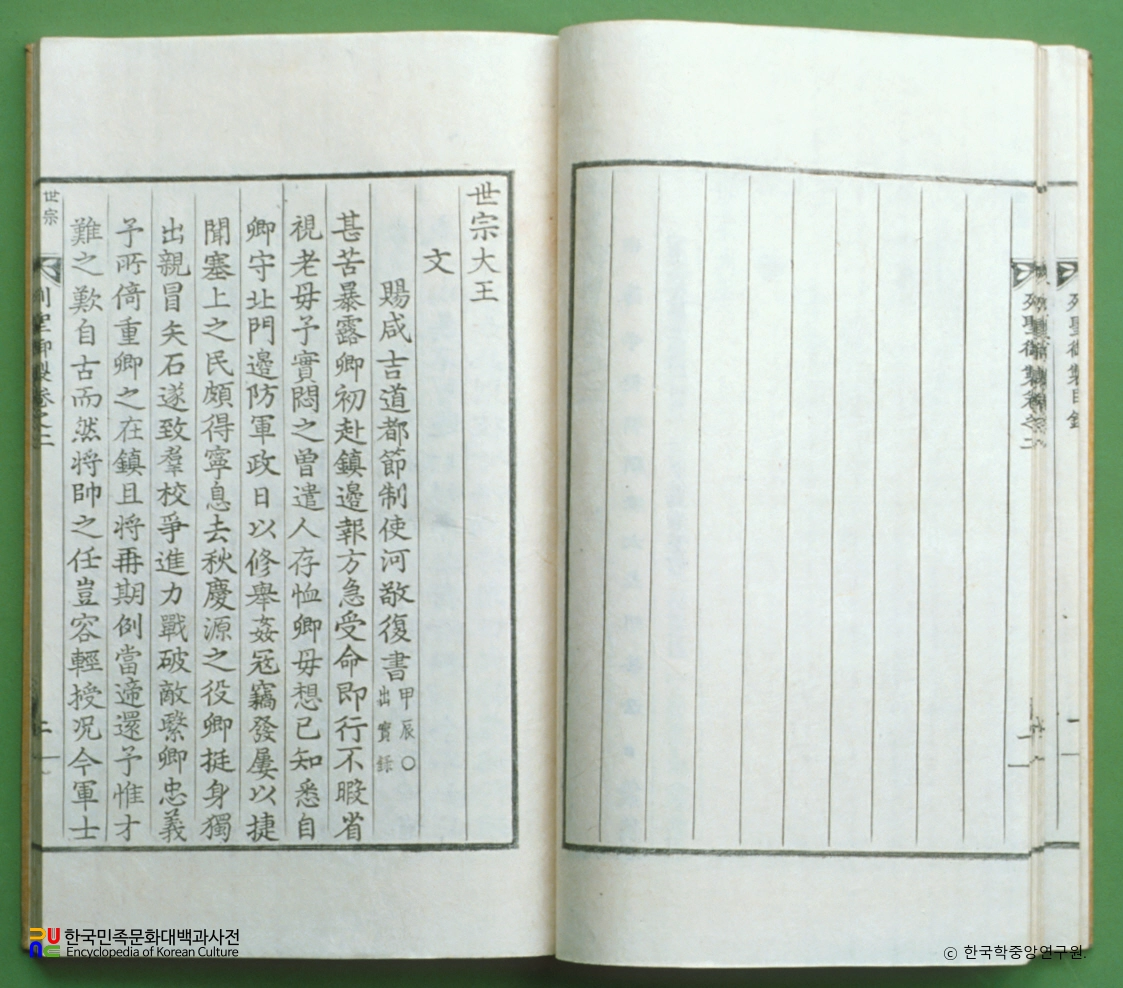 世宗大王
文
賜咸吉道都節制使河敬復書 甲辰〇
出實錄
甚苦暴露卿初赴鎮邊報方急受命即行不暇省
視老母予實悶之曾遣人存恤卿母想已知悉自
卿守北門邊防軍政日以修舉姦冦竊發屢以捷
聞塞上之民頗得寧息去秋慶源之役卿挺身獨
出親冒矢石遂致羣校爭進力戰破敵繄卿忠義
予所倚重卿之在鎮且將再期例當遆還予惟才
難之歎自古而然將帥之任豈容輕授况今軍士
世宗
列聖御製卷之二
二
列聖御集卷之二
列聖御集目錄
한국민족문화대백과사전
Encyclopedia of Korean Culture
© 한국학중앙연구원.